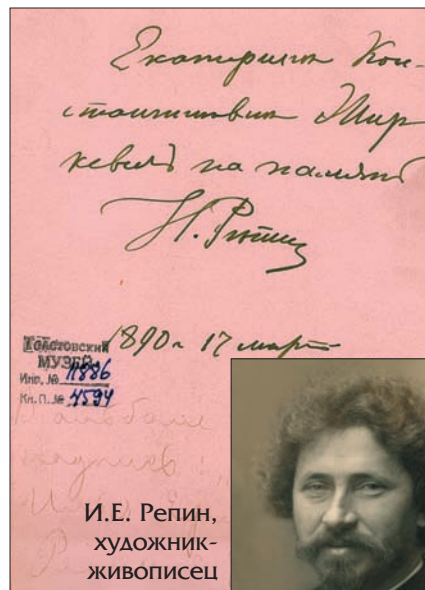 Екатеринѣ Кон-
стантиновнѣ Жир
кевичъ на память
И. Рѣпинъ
1890 г. 17 мартъ
Толстовский
МУЗЕЙ
Инв. № 11886
Кн. П. № 4594
надпись:
И.Е. Репин,
художник-
живописец